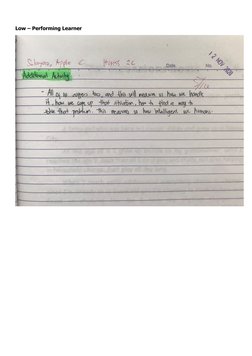 Low – Performing Learner
Apple C. Date No.
12 NOV 2020
Additional Activity
- All of us suffers too, and this will measure is how we handle
it, how we cope up that situation, how to find a way to
solve that problem. This measures is how intelligent us humans.